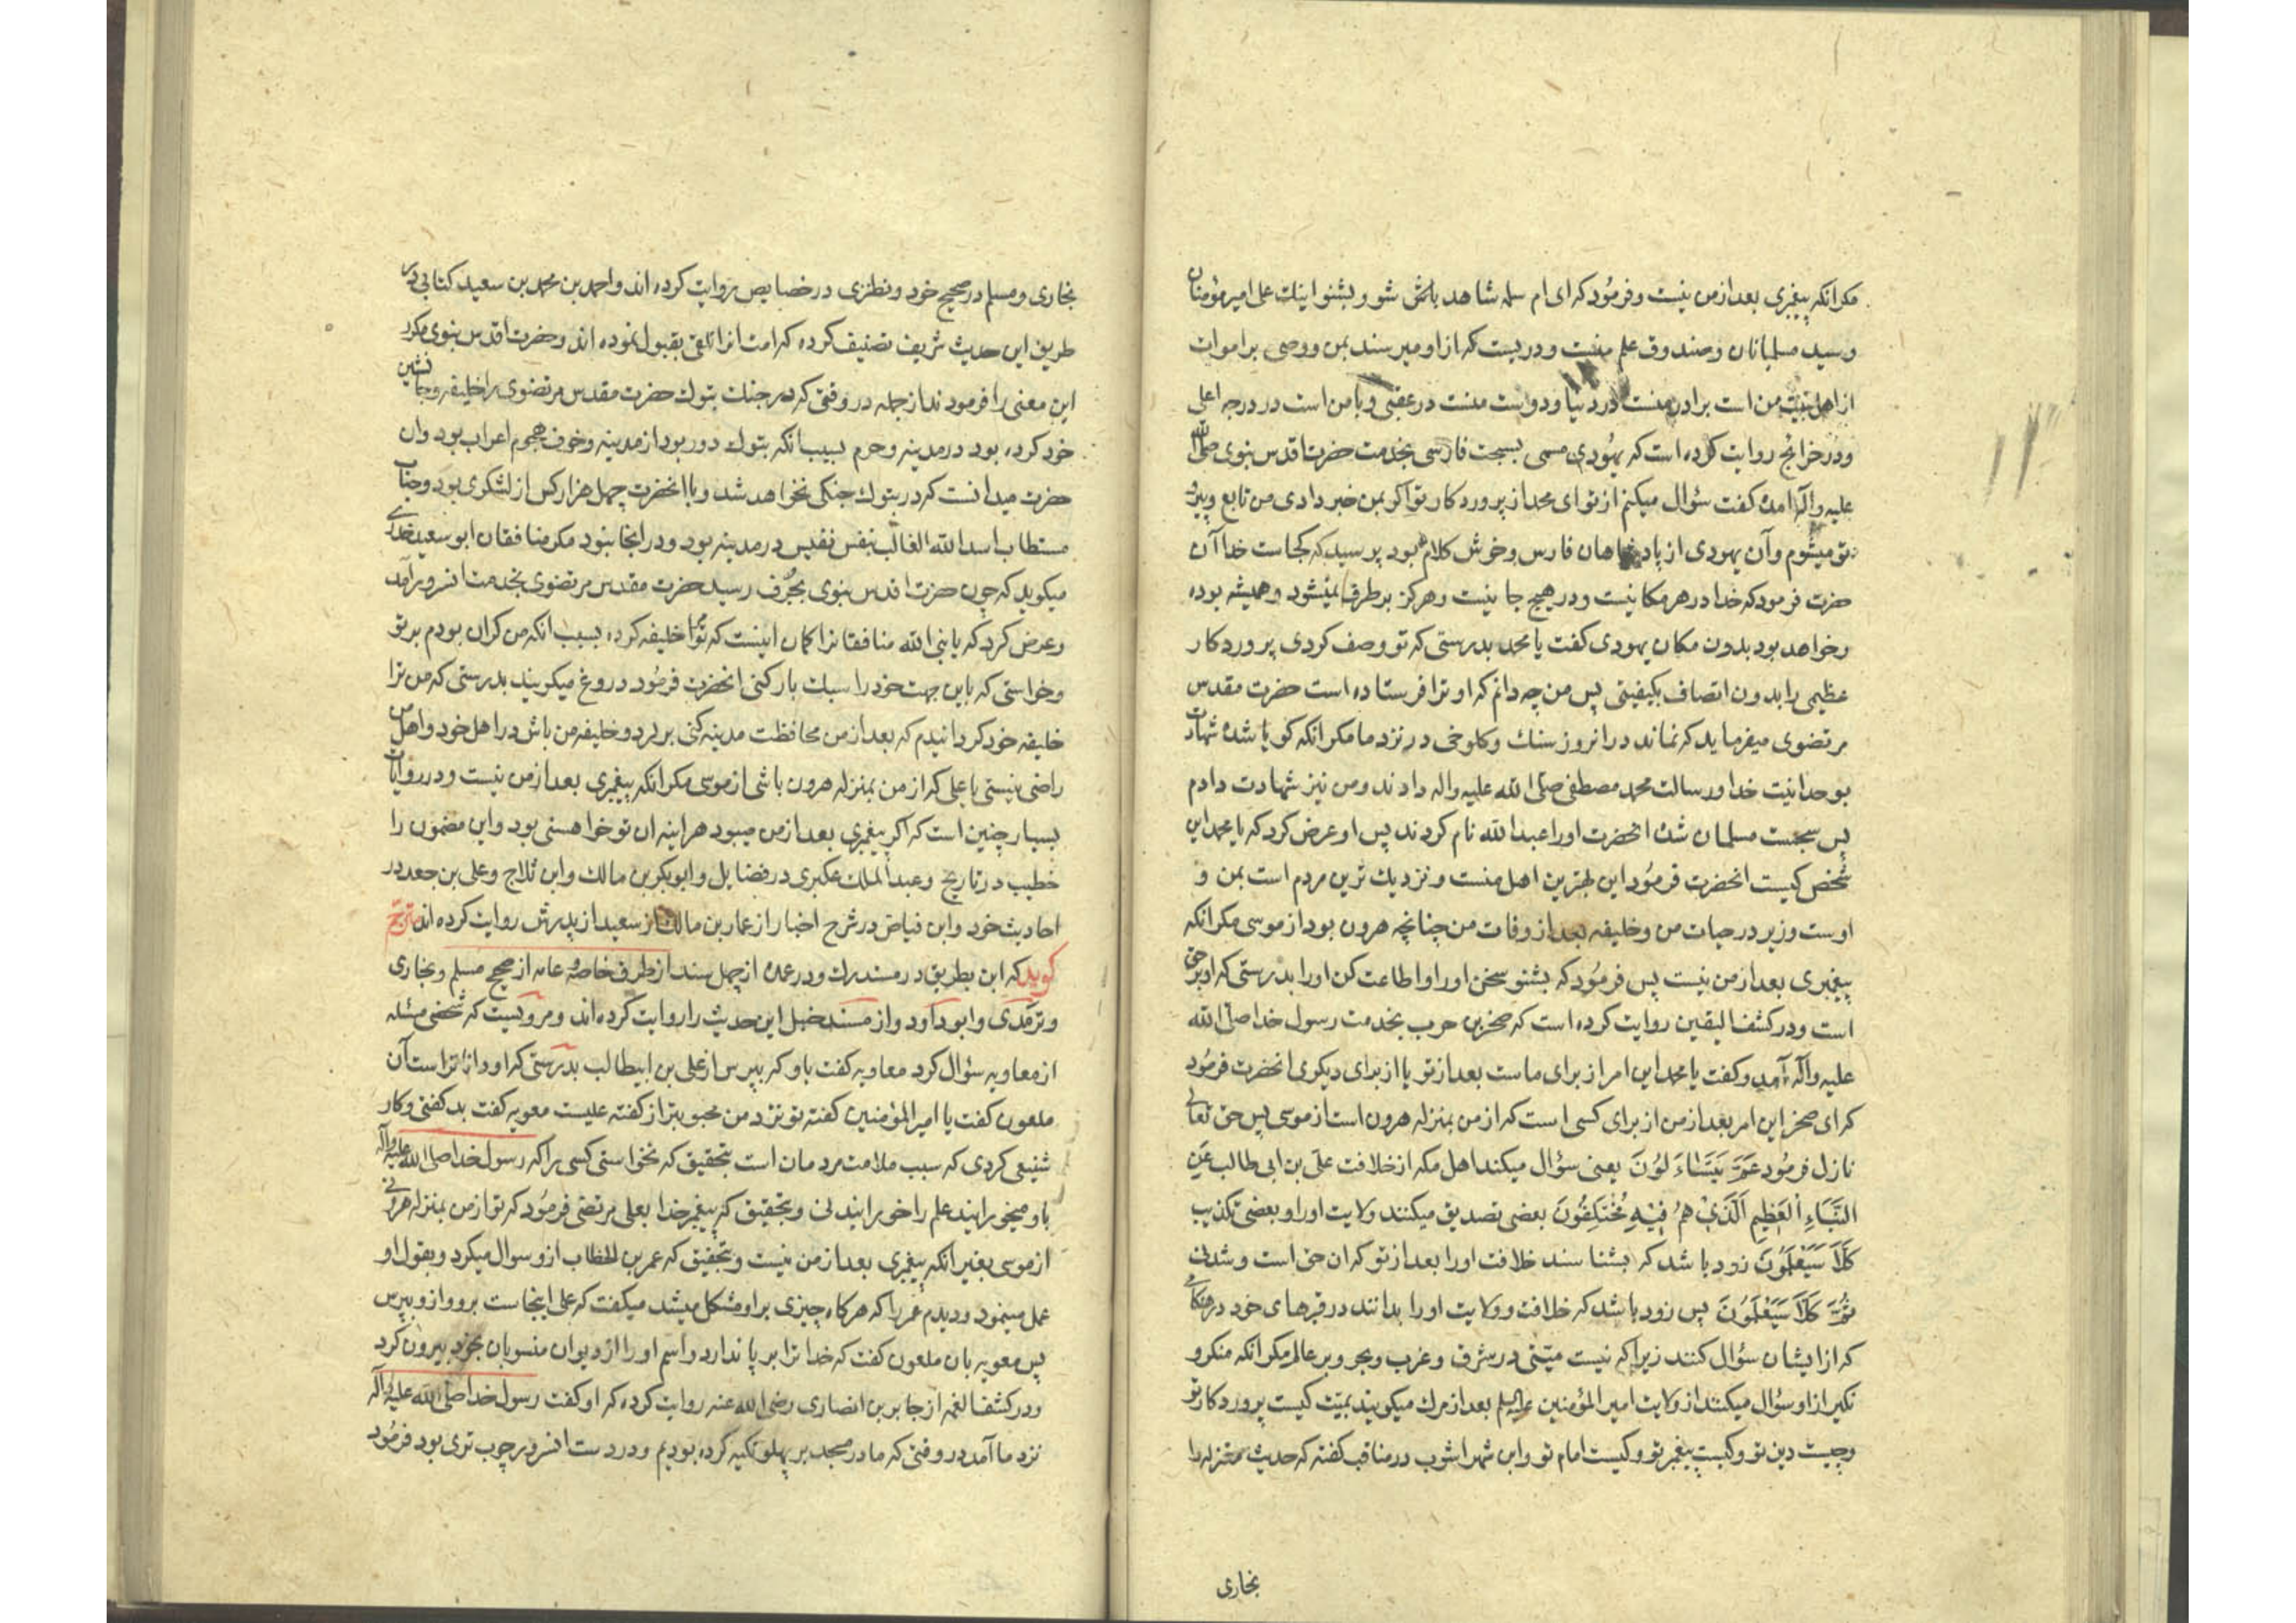 مکر انکه پیغمبری بعد از من نیست و فرمود که ای ام سلمه شاهد باش و بشنو اینك علی امیر مؤمنان
و سید مسلمانان و صندوق علم منست و دریست که از او میرسند بمن و وصی بر اموات
از اهل بیت من است برادر منست در دنیا و دوست منست در عقبی و با من است در درجه اعلی
و در خرایج روایت کرده است که یهودی مسمی بسجت فارسی بخدمت حضرت اقدس نبوی صلی الله
علیه و آله آمده کفت سؤال میکنم از تو ای محمد از پروردکار تو اکر بمن خبر دادی من تابع و پیرو
تو میشوم و آن یهودی از پادشاهان فارس و خوش کلام بود پرسید که کجاست خدا آن
حضرت فرمود که خدا در هر مکانیست و در هیچ جا نیست و هرکز برطرف نمیشود و همیشه بوده
و خواهد بود بدون مکان یهودی کفت یا محمد بدرستی که تو وصف کردی پروردکار
عظیمی را بدون اتصاف بکیفیتی پس من چه دانم که او ترا فرستاده است حضرت مقدس
مرتضوی میفرماید که نماند در انروز سنك و کلوخی در نزد ما مکر انکه کویا شده شهادت
بوحدانیت خدا و رسالت محمد مصطفی صلی الله علیه و اله دادند و من نیز شهادت دادم
پس سجت مسلمان شد انحضرت او را عبد الله نام کردند پس او عرض کرد که یا محمد این
شخص کیست انحضرت فرمود این بهترین اهل منست و نزدیك ترین مردم است بمن و
اوست وزیر در حیات من و خلیفه بعد از وفات من چنانچه هرون بود از موسی مکر انکه
پیغمبری بعد از من نیست پس فرمود که بشنو سخن او را و اطاعت کن او را بدرستی که او بر حق
است و در کشف الیقین روایت کرده است که صخر بن حرب بخدمت رسول خدا صلی الله
علیه و آله آمد و کفت یا محمد این امر از برای ماست بعد از تو یا از برای دیکری انحضرت فرمود
که ای صخر این امر بعد از من از برای کسی است که از من بمنزله هرون است از موسی پس حق تعالی
نازل فرمود عَمَّ يَتَسَاءَلُونَ یعنی سؤال میکند اهل مکه از خلافت علی بن ابی طالب عَنِ
النَّبَاءِ الْعَظِيمِ الَّذِي هُمْ فِيهِ مُخْتَلِفُونَ بعضی تصدیق میکنند ولایت او را و بعضی تکذیب
كَلَّا سَيَعْلَمُونَ زود باشد که بشناسند خلافت او را بعد از تو که ان حق است و شدنی
ثُمَّ كَلَّا سَيَعْلَمُونَ پس زود باشد که خلافت و ولایت او را بدانند در قبرهای خود در هنکامی
که از ایشان سؤال کنند زیرا که نیست میّتی در شرق و غرب و بحر و بر عالم مکر انکه منکر و
نکیر از او سؤال میکنند از ولایت امیر المؤمنین بعد از مرك میکویند بمیّت کیست پروردکار تو
و چیست دین تو و کیست پیغمبر تو و کیست امام تو و ابن شهراشوب در مناقب کفته که حدیث منزله را
بخاری
بخاری و مسلم در صحیح خود و نطنزی در خصایص روایت کرده اند و احمد بن محمد بن سعید کتابی در
طریق این حدیث شریف تصنیف کرده که امت انرا تلقی بقبول نموده اند و حضرت اقدس نبوی مکرر
این معنی را فرمودند از جمله در وقتی که در جنك تبوك حضرت مقدس مرتضوی را خلیفه و جانشین
خود کرده بود در مدینه و حرم بسبب انکه تبوك دور بود از مدینه و خوف هجوم اعراب بود و ان
حضرت میدانست که در تبوك جنکی نخواهد شد و با انحضرت چهل هزار کس از لشکری بود و جناب
مستطاب اسد الله الغالب بنفس نفیس در مدینه بود و در انجا نبود مکر منافقان ابو سعید خدری
میکوید که چون حضرت اقدس نبوی بجُرف رسید حضرت مقدس مرتضوی بخدمت انسرور آمد
و عرض کرد که یا نبی الله منافقانرا کمان اینست که تو مرا خلیفه کرده بسبب انکه من کران بودم بر تو
و خواستی که باین جهت خود را سبك بار کنی انحضرت فرمود دروغ میکویند بدرستی که من ترا
خلیفه خود کردانیدم که بعد از من محافظت مدینه کنی برکرد و خلیفه من باش در اهل خود و اهل من
راضی نیستی یا علی که از من بمنزله هرون باشی از موسی مکر انکه پیغمبری بعد از من نیست و در روایات
بسیار چنین است که اکر پیغمبری بعد از من میبود هر اینه ان تو خواهستی بود و این مضمون را
خطیب در تاریخ و عبد الملك عکبری در فضایل و ابو بکر بن مالك و ابن ثلاج و علی بن جعد در
احادیث خود و ابن فیاض در شرح اخبار از عمار بن مالك از سعید از پدرش روایت کرده اند مترجم
کوید که ابن بطریق در مستدرك و در عمده از چهل سند از طرف خاصه و عامه از صحیح مسلم و بخاری
و ترمذی و ابو داود و از مسند حنبل این حدیث را روایت کرده اند و مرویست که شخصی مسئله
از معاویه سؤال کرد معاویه کفت باو که بپرس از علی بن ابیطالب بدرستی که او داناتر است آن
ملعون کفت یا امیر المؤمنین کفته تو نزد من محبوبتر از کفته علیست معویه کفت بد کفتی و کار
شنیعی کردی که سبب ملامت مردمان است بتحقیق که نخواستی کسی را که رسول خدا صلی الله علیه و آله
باو میخورانید علم را خورانیدنی و بتحقیق که پیغمبر خدا بعلی مرتضی فرمود که تو از من بمنزله هرونی
از موسی بغیر انکه پیغمبری بعد از من نیست و بتحقیق که عمر بن الخطاب از و سوال میکرد و بقول او
عمل مینمود و دیدم عمر را که هرکاه چیزی بر او مشکل میشد میکفت که علی اینجاست برو و از و بپرس
پس معویه بان ملعون کفت که خدا ترا بر پا ندارد و اسم او را از دیوان منسوبان بخود بیرون کرد
و در کشف الغمه از جابر بن انصاری رضی الله عنه روایت کرده که او کفت رسول خدا صلی الله علیه و آله
نزد ما آمد در وقتی که ما در مسجد بر پهلو تکیه کرده بودیم و در دست انسرور چوب تری بود فرمود